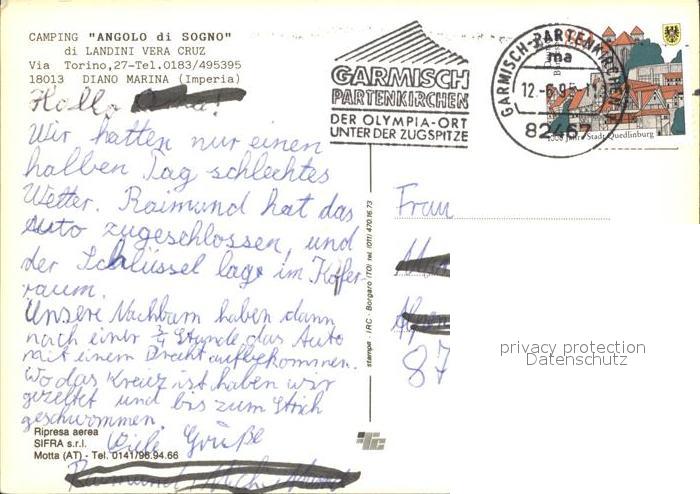 CAMPING "ANGOLO di SOGNO"
di LANDINI VERA CRUZ
Via Torino,27-Tel.0183/495395
18013 DIANO MARINA (Imperia)
Hallo !
Wir hatten nur einen
halben Tag schlechtes
Wetter. Raimund hat das
Auto zugeschlossen, und
der Schlüssel lag im Koffer-
raum.
Unsere Nachbarn haben dann
nach einer 3/4 Stunde das Auto
mit einem Draht aufbekommen.
Wo das Kreuz ist haben wir
gezeltet und bis zum Strich
geschwommen.
Viele Grüße
Raimund
Ripresa aerea
SIFRA s.r.l.
Motta (AT) - Tel. 0141/96.94.66
GARMISCH
PARTENKIRCHEN
DER OLYMPIA-ORT
UNTER DER ZUGSPITZE
GARMISCH-PARTENKIRCHEN 1
ma
82467
1000 Jahre Stadt Quedlinburg
stampa - IRC - Borgaro (TO) tel. (011) 470.16.73
Frau
87
privacy protection
Datenschutz